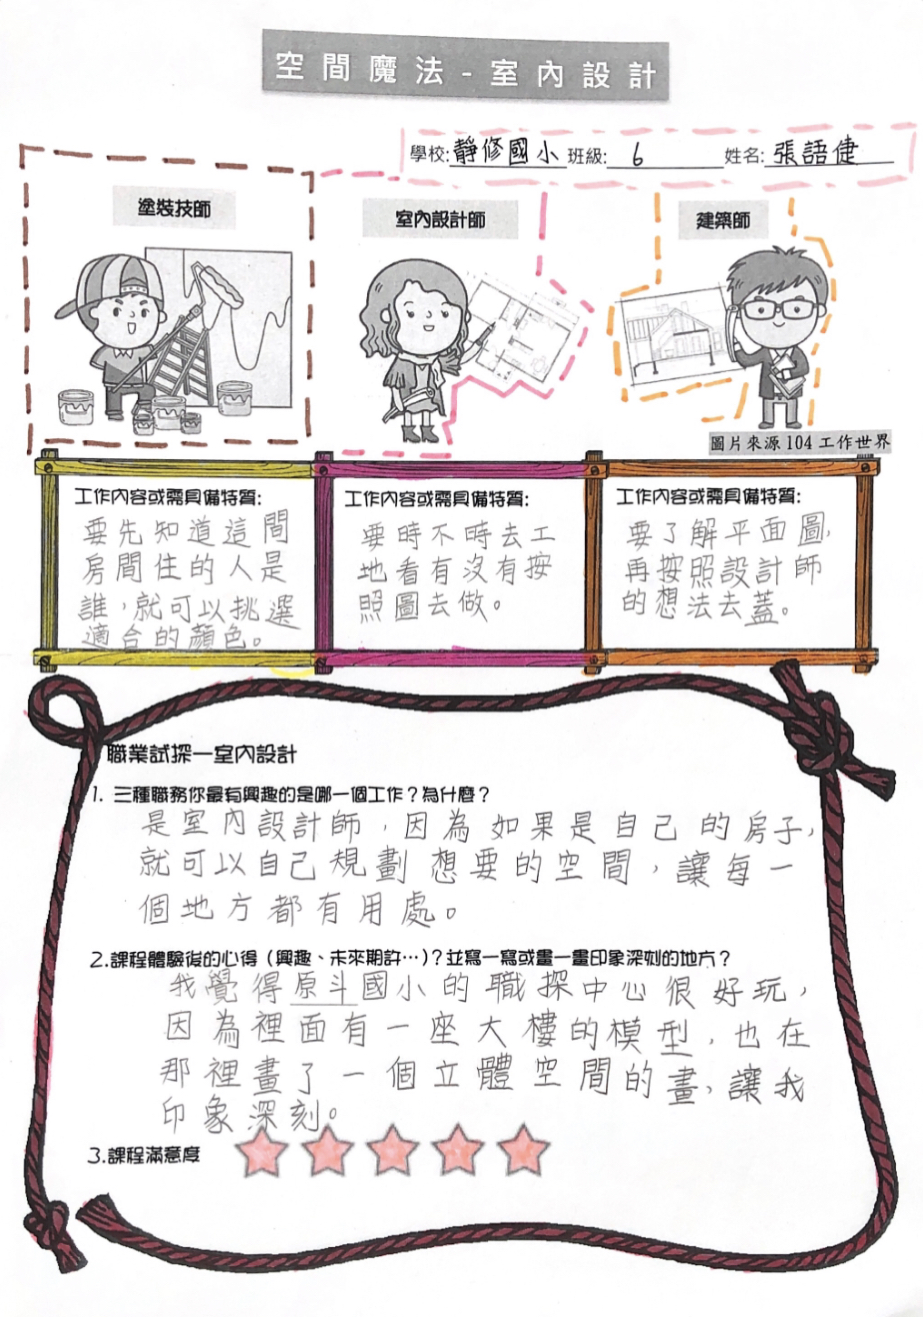 空間魔法-室內設計
學校:靜修國小 班級: 6 姓名:張語倢
塗裝技師
室內設計師
建築師
圖片來源104工作世界
工作內容或需具備特質:
要先知道這間
房間住的人是
誰,就可以挑選
適合的顏色。
工作內容或需具備特質:
要時不時去工
地看有沒有按
照圖去做。
工作內容或需具備特質:
要了解平面圖,
再按照設計師
的想法去蓋。
職業試探—室內設計
1. 三種職務你最有興趣的是哪一個工作?為什麼?
是室內設計師,因為如果是自己的房子,
就可以自己規劃想要的空間,讓每一
個地方都有用處。
2.課程體驗後的心得(興趣、未來期許…)?並寫一寫或畫一畫印象深刻的地方?
我覺得原斗國小的職探中心很好玩,
因為裡面有一座大樓的模型,也在
那裡畫了一個立體空間的畫,讓我
印象深刻。
3.課程滿意度